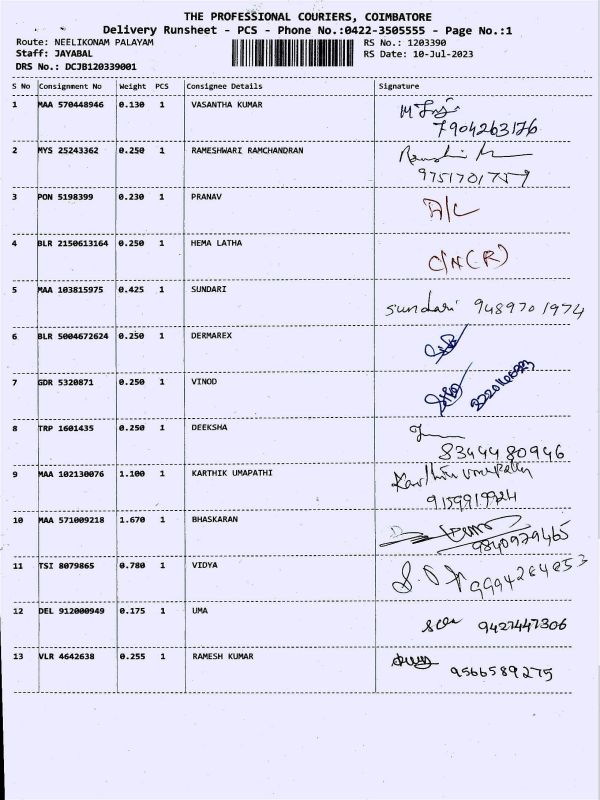 THE PROFESSIONAL COURIERS, COIMBATORE
Delivery Runsheet - PCS - Phone No.:0422-3505555 - Page No.:1
Route: NEELIKONAM PALAYAM RS No.: 1203390
Staff: JAYABAL RS Date: 10-Jul-2023
DRS No.: DCJB120339001
S No Consignment No Weight PCS Consignee Details Signature
1 MAA 570448946 0.130 1 VASANTHA KUMAR
7904263176
2 MYS 25243362 0.250 1 RAMESHWARI RAMCHANDRAN
9751701757
3 PON 5198399 0.230 1 PRANAV D/L
4 BLR 2150613164 0.250 1 HEMA LATHA C/N(R)
5 MAA 103815975 0.425 1 SUNDARI sundari 9489701974
6 BLR 5004672624 0.250 1 DERMAREX
7 GDR 5320871 0.250 1 VINOD
8 TRP 1601435 0.250 1 DEEKSHA
8344480946
9 MAA 102130076 1.100 1 KARTHIK UMAPATHI
9159919924
10 MAA 571009218 1.670 1 BHASKARAN
9840979465
11 TSI 8079865 0.780 1 VIDYA 9994264853
12 DEL 912000949 0.175 1 UMA 9427447306
13 VLR 4642638 0.255 1 RAMESH KUMAR 9566589275